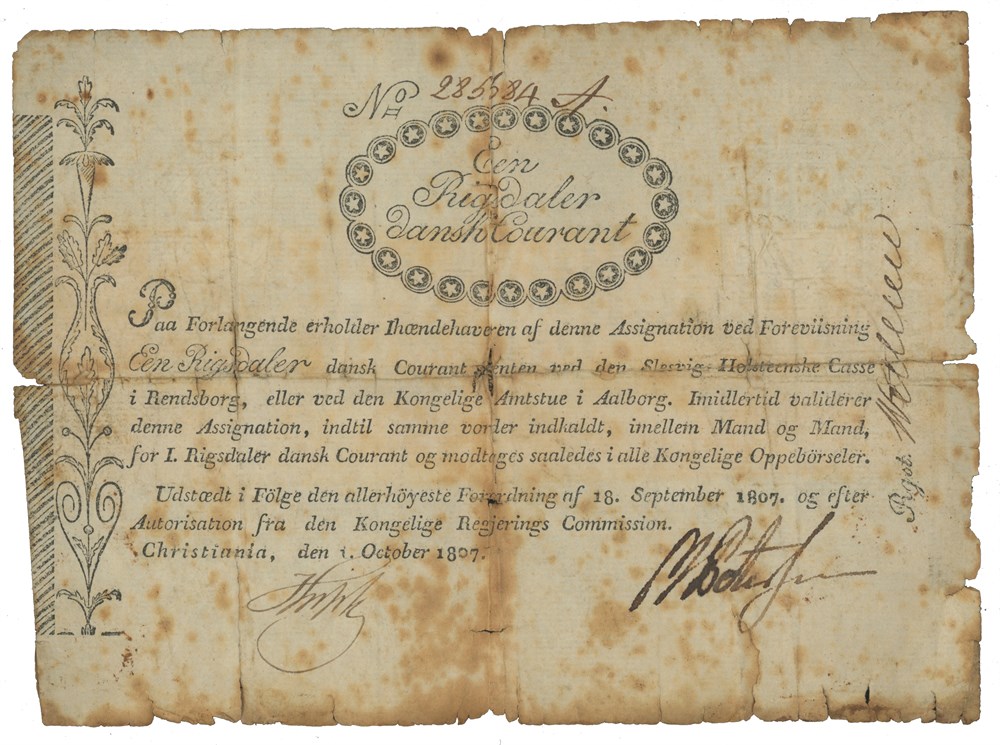 No 285584 A.
Een
Rigsdaler
dansk Courant
Paa Forlangende erholder Ihændehaveren af denne Assignation ved Foreviisning
Een Rigsdaler dansk Courant enten ved den Slesvig-Holsteenske Casse
i Rendsborg, eller ved den Kongelige Amtstue i Aalborg. Imidlertid validerer
denne Assignation, indtil samme vorder indkaldt, imellem Mand og Mand,
for I. Rigsdaler dansk Courant og modtages saaledes i alle Kongelige Oppebörseler.
Udstædt i Fölge den allerhöyeste Forordning af 18. September 1807. og efter
Autorisation fra den Kongelige Regjerings Commission.
Christiania, den 1. October 1807.